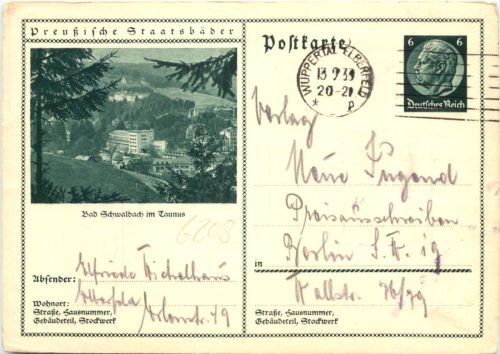 Preußische Staatsbäder
Postkarte
WUPPERTAL-ELBERFELD
13.9.33
20-21
* p
6 6
Deutsches Reich
Verlag
Neue Jugend
Preisausschreiben
in Berlin S.W. 19
Wallstr. 76/79
Straße, Hausnummer,
Gebäudeteil, Stockwerk
Bad Schwalbach im Taunus
6208
Absender: Elfriede
Wohnort: Elberfeld
Straße, Hausnummer,
Gebäudeteil, Stockwerk